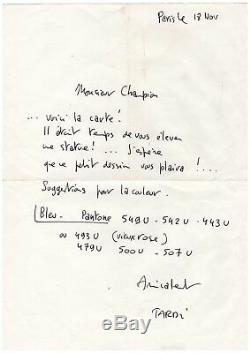 Paris le 18 Nov
Monsieur Champion
... voici la carte!
Il était temps de vous élever
une statue! ... J'espère
que ce petit dessin vous plaira!...
Suggestions pour la couleur.
Bleu - Pantone 549U - 542U - 443U
ou 493U (vieux rose)
479U 500U - 507U
Amicalement
TARDI